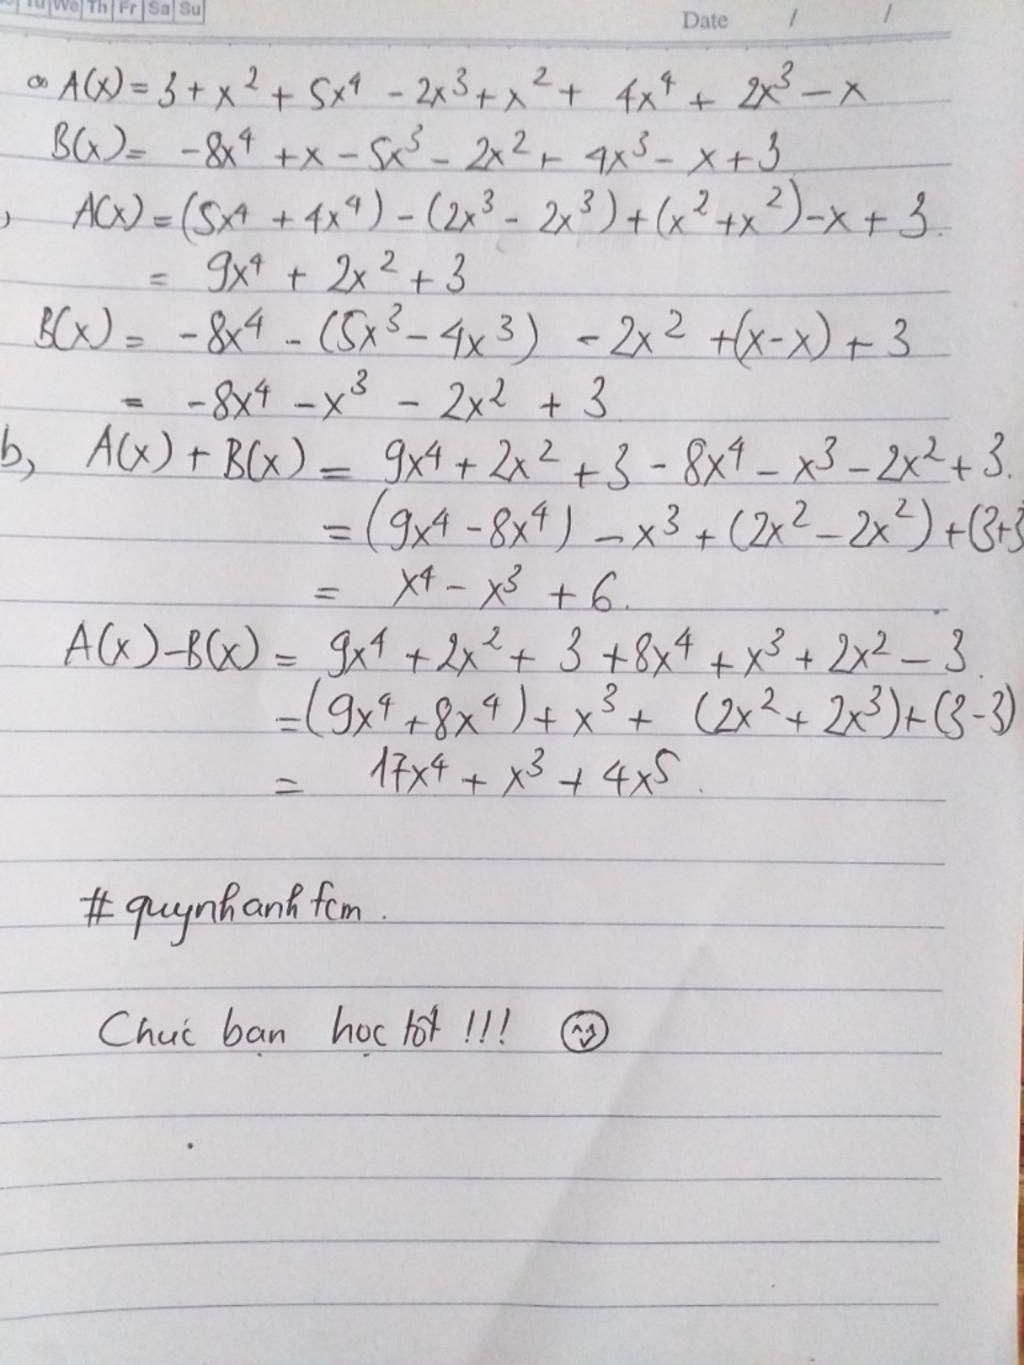 Tu We Th Fr Sa Su
Date / /
A(x) = 3 + x² + 5x⁴ - 2x³ + x² + 4x⁴ + 2x³ - x
B(x) = -8x⁴ + x - 5x³ - 2x² + 4x³ - x + 3
, A(x) = (5x⁴ + 4x⁴) - (2x³ - 2x³) + (x² + x²) - x + 3.
= 9x⁴ + 2x² + 3
B(x) = -8x⁴ - (5x³ - 4x³) - 2x² + (x - x) + 3
= -8x⁴ - x³ - 2x² + 3
b, A(x) + B(x) = 9x⁴ + 2x² + 3 - 8x⁴ - x³ - 2x² + 3.
= (9x⁴ - 8x⁴) - x³ + (2x² - 2x²) + (3+3
= x⁴ - x³ + 6.
A(x) - B(x) = 9x⁴ + 2x² + 3 + 8x⁴ + x³ + 2x² - 3.
= (9x⁴ + 8x⁴) + x³ + (2x² + 2x³) + (3 - 3)
= 17x⁴ + x³ + 4x⁵.
# quynhanhfcm.
Chúc bạn học tốt !!!